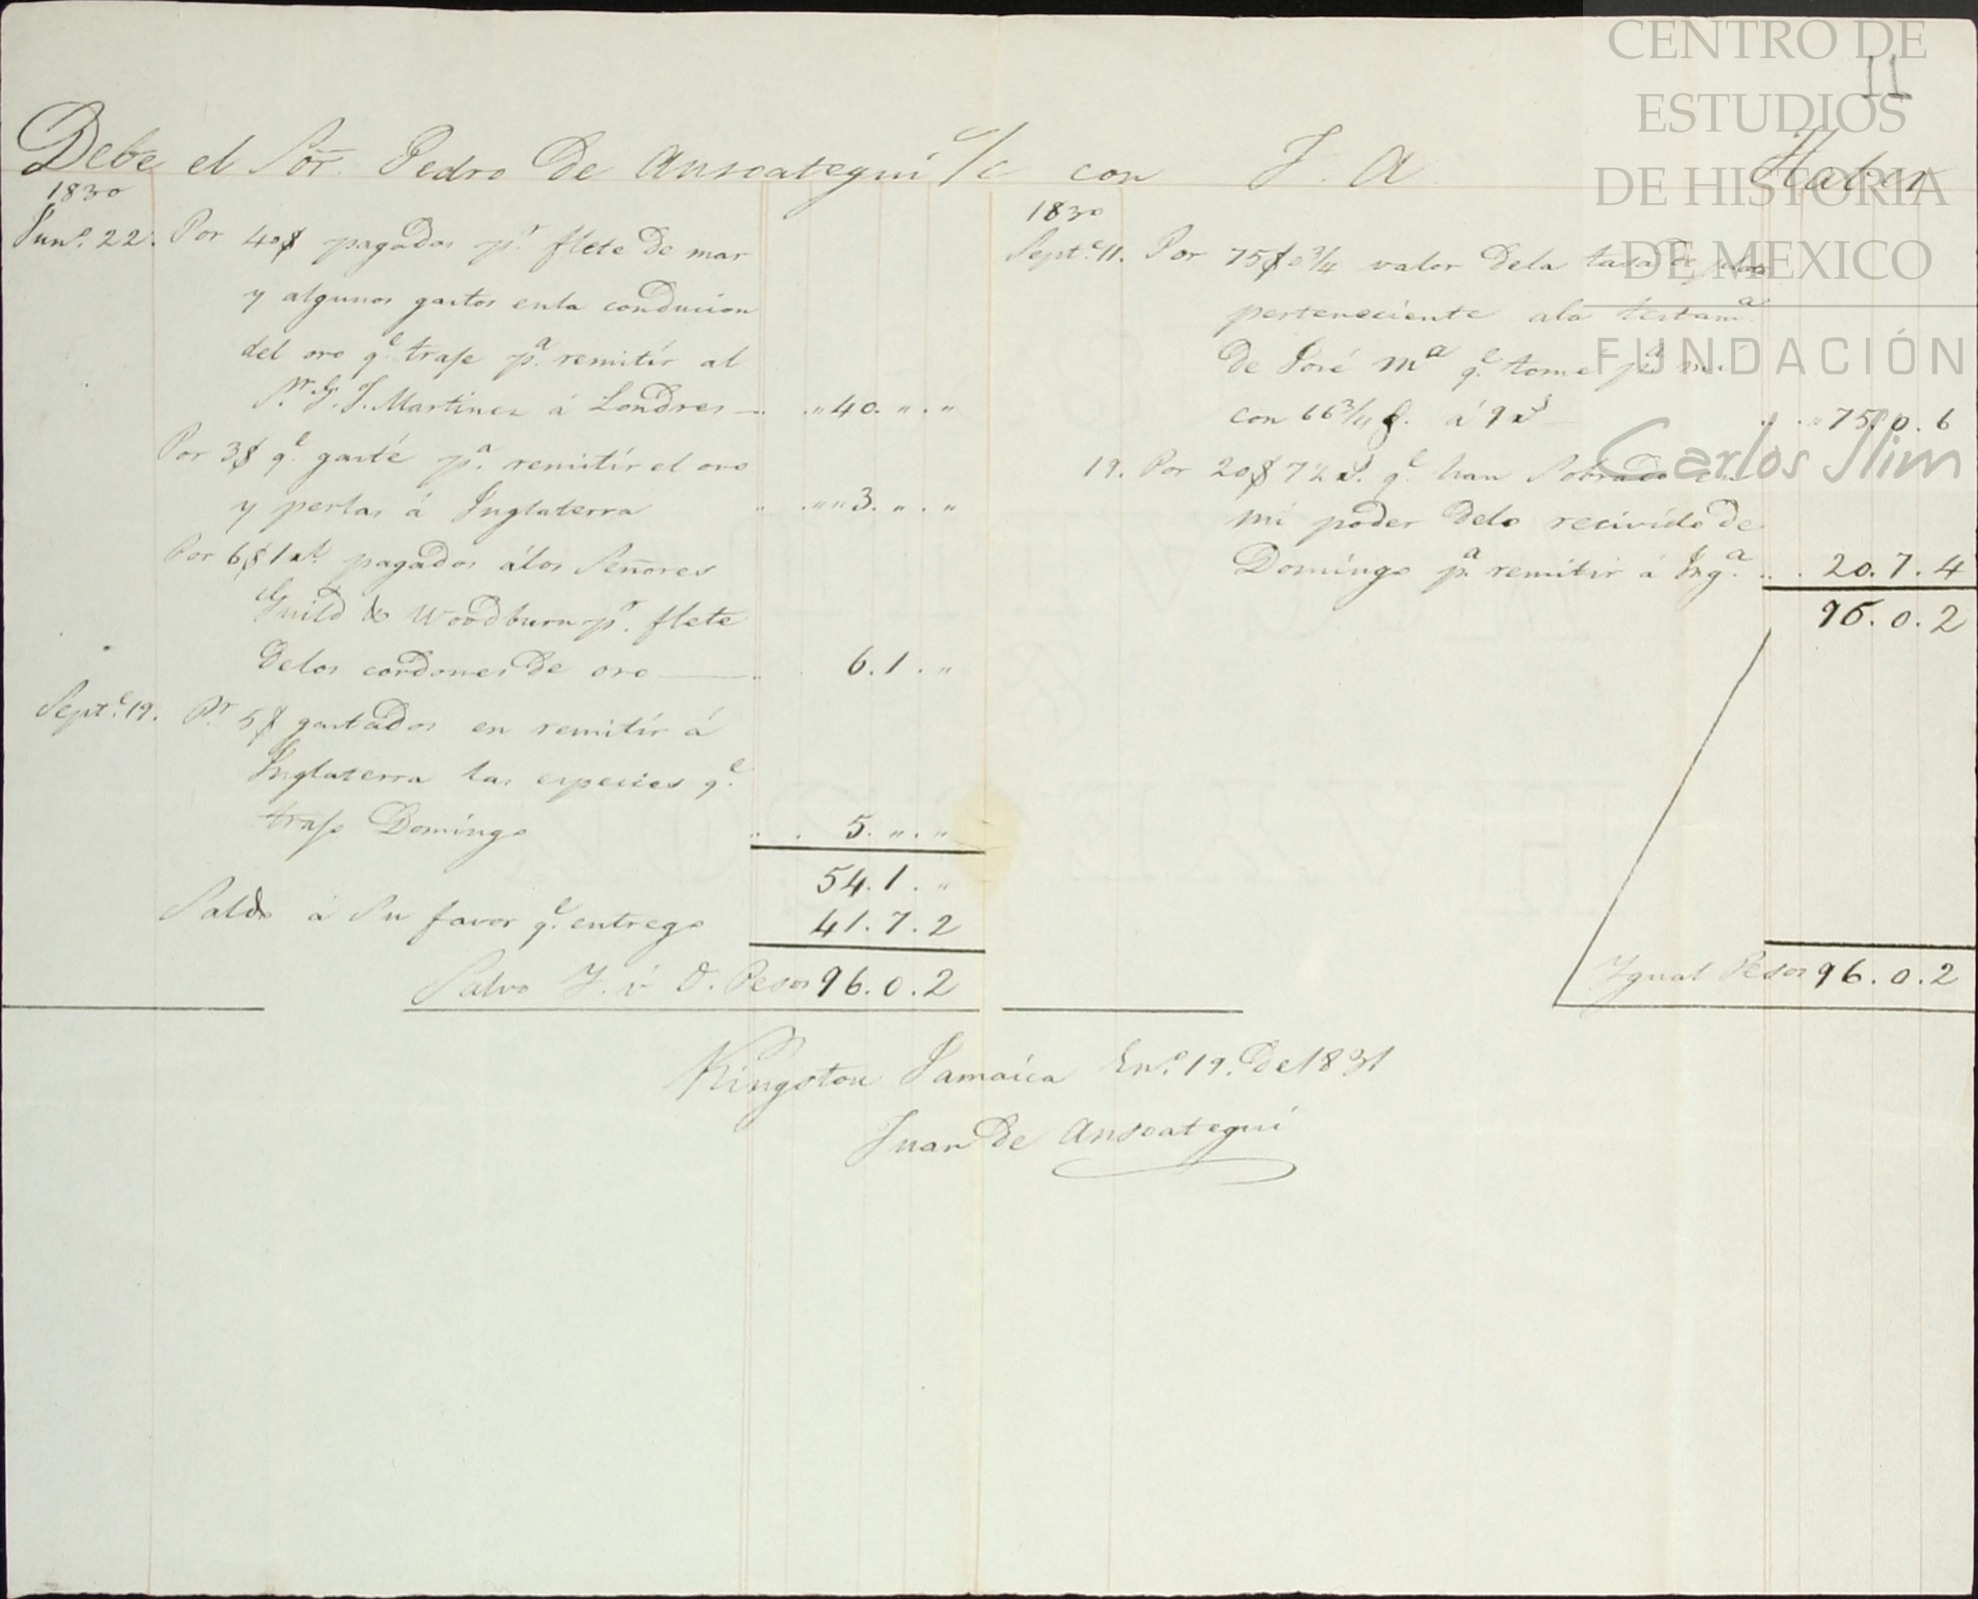 CENTRO DE
ESTUDIOS
DE HISTORIA
DE MEXICO
FUNDACIÓN
Carlos Slim
11
Debe el Sor. Pedro de Ansoategui c/c con J. A. Haber
1830
Jun.º 22. Por 40$ pagados p.r flete de mar
y algunos gastos enla conducion
del oro q.e traje p.a remitir al
S.r G. J. Martinez á Londres .. . " 40. " . "
Por 3$ q.e gasté p.a remitir el oro
y perlas á Inglaterra .. . " " 3. " . "
Por 6$1 rl. pagados álos Señores
Guild & Woodburn p.r flete
delos cordones de oro .. . 6. 1 . "
Sept.e 19. P.r 5$ gastados en remitir á
Inglaterra las especies q.e
trajo Domingo .. . 5. " . "
54. 1 . "
Saldo á su favor q.e entrego 41. 7. 2
Salvo Y. ú O. Pesos 96. 0. 2
1830
Sept.e 11. Por 75$ 0 3/4 valor dela tasa de plata
perteneciente ala testam.a
de José M.a q.e tome p.a mi
con 66 3/4 á 9 rs .. . " 75. 0. 6
19. Por 20$ 7 ½ rs. q.e han sobrado en
mi poder delo recivido de
Domingo p.a remitir á Ing.a .. . 20. 7. 4
96. 0. 2
Ygual Pesos 96. 0. 2
Kingston Jamaica En.o 19. de 1831
Juan de Ansoategui